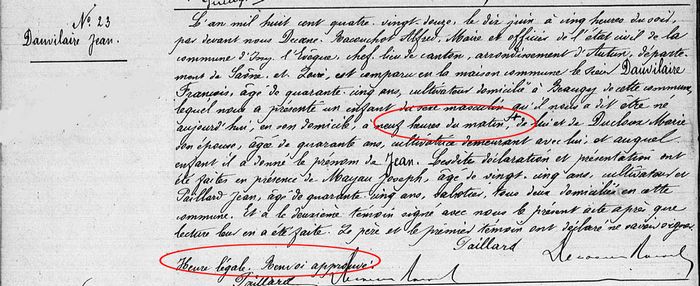 N° 23
Dauvilaire Jean.
L'an mil huit cent quatre-vingt-douze, le dix juin à cinq heures du soir,
par devant nous Alfred, Maire et officier de l'état civil de la
commune d'Issy l'Evêque, chef-lieu de canton, arrondissement d'Autun, départe-
ment de Saône-et-Loire, est comparu en la maison commune le sieur Dauvilaire
François, âgé de quarante-cinq ans, cultivateur domicilié à Beaugy de cette commune,
lequel nous a présenté un enfant du sexe masculin qu'il nous a dit être né
aujourd'hui, en son domicile, à neuf heures du matin,+ de lui et de Ducloux Marie
son épouse, âgée de quarante ans, cultivatrice demeurant avec lui, et auquel
enfant il a donné le prénom de Jean. Lesdite déclaration et présentation ont
été faites en présence de Mayau Joseph, âgé de vingt-cinq ans, cultivateur et
Taillard Jean, âgé de quarante-cinq ans, sabotier, tous deux domiciliés en cette
commune. Et a le deuxième témoin signé avec nous le présent acte après que
lecture leur en a été faite. Le père et le premier témoin ont déclaré ne savoir signer.
Taillard
Heure légale. Renvoi approuvé.
Taillard